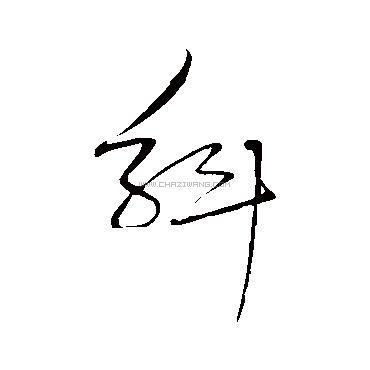 斛
WWW.CHAZIWANG.COM